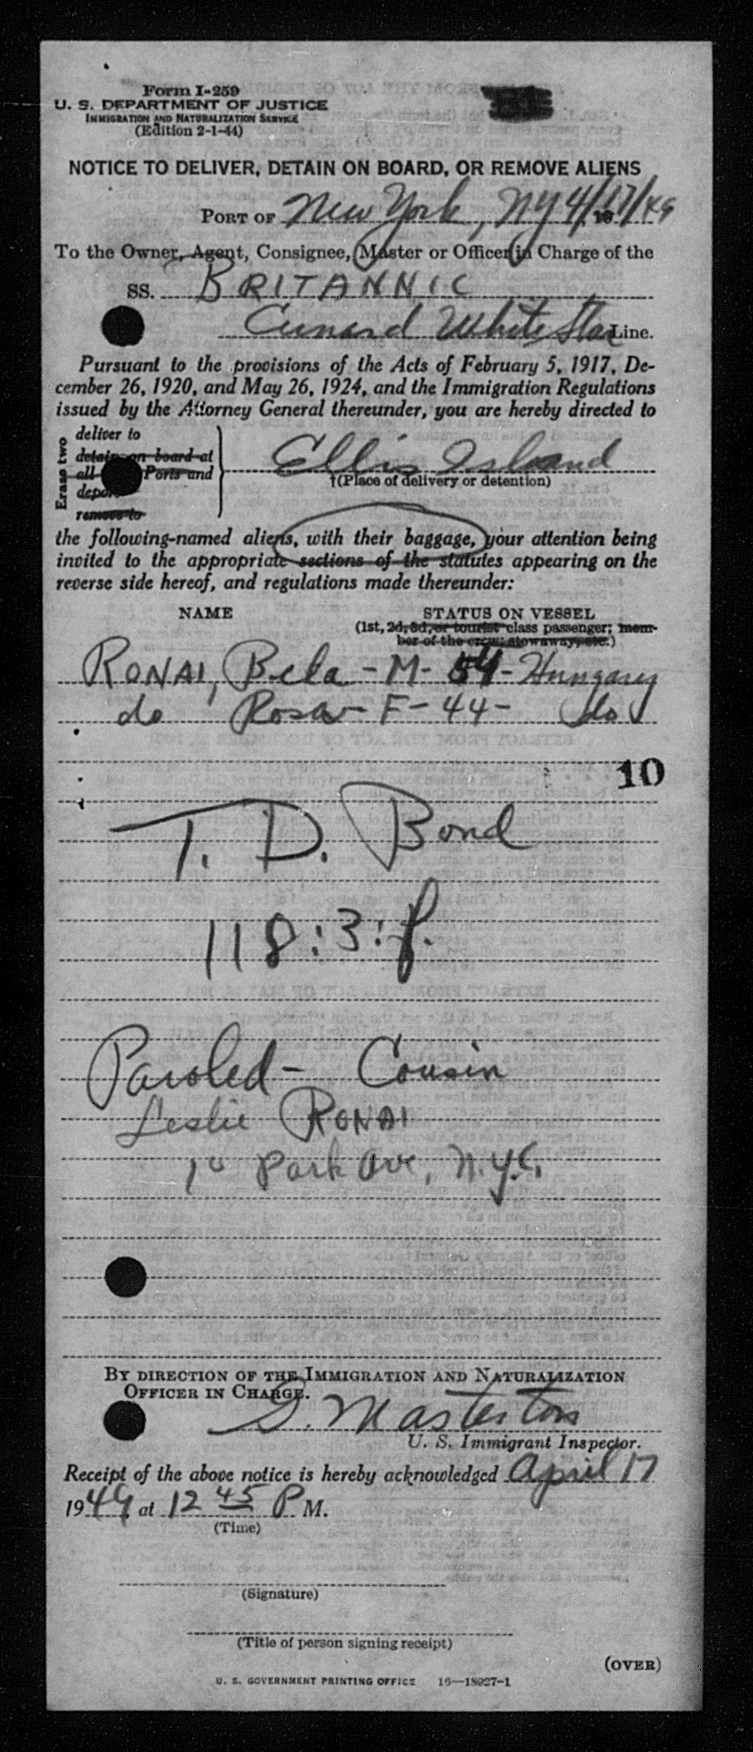 Form I-259
U. S. DEPARTMENT OF JUSTICE
IMMIGRATION AND NATURALIZATION SERVICE
(Edition 2-1-44)
NOTICE TO DELIVER, DETAIN ON BOARD, OR REMOVE ALIENS
PORT OF New York, NY 4/17/49
To the Owner, Agent, Consignee, Master or Officer in Charge of the
SS. BRITANNIC
Cunard White Star Line.
Pursuant to the provisions of the Acts of February 5, 1917, De-
cember 26, 1920, and May 26, 1924, and the Immigration Regulations
issued by the Attorney General thereunder, you are hereby directed to
Erase two
deliver to
detain on board at
all Ports and
deport
remove to
Ellis Island
†(Place of delivery or detention)
the following-named aliens, with their baggage, your attention being
invited to the appropriate sections of the statutes appearing on the
reverse side hereof, and regulations made thereunder:
NAME STATUS ON VESSEL
(1st, 2d, 3d, or tourist class passenger; mem-
ber of the crew; stowaway, etc.)
RONAI, Bela - M - 54 - Hungary
do Rosa - F - 44 - do
10
T. D. Bond
118:3:f.
Paroled - Cousin
Leslie RONAI
Park Ave, N.Y.C.
BY DIRECTION OF THE IMMIGRATION AND NATURALIZATION
OFFICER IN CHARGE.
S. Masterton
U. S. Immigrant Inspector.
Receipt of the above notice is hereby acknowledged April 17
1949 at 12 45 P M.
(Time)
(Signature)
(Title of person signing receipt)
(OVER)
U. S. GOVERNMENT PRINTING OFFICE 16—18027-1